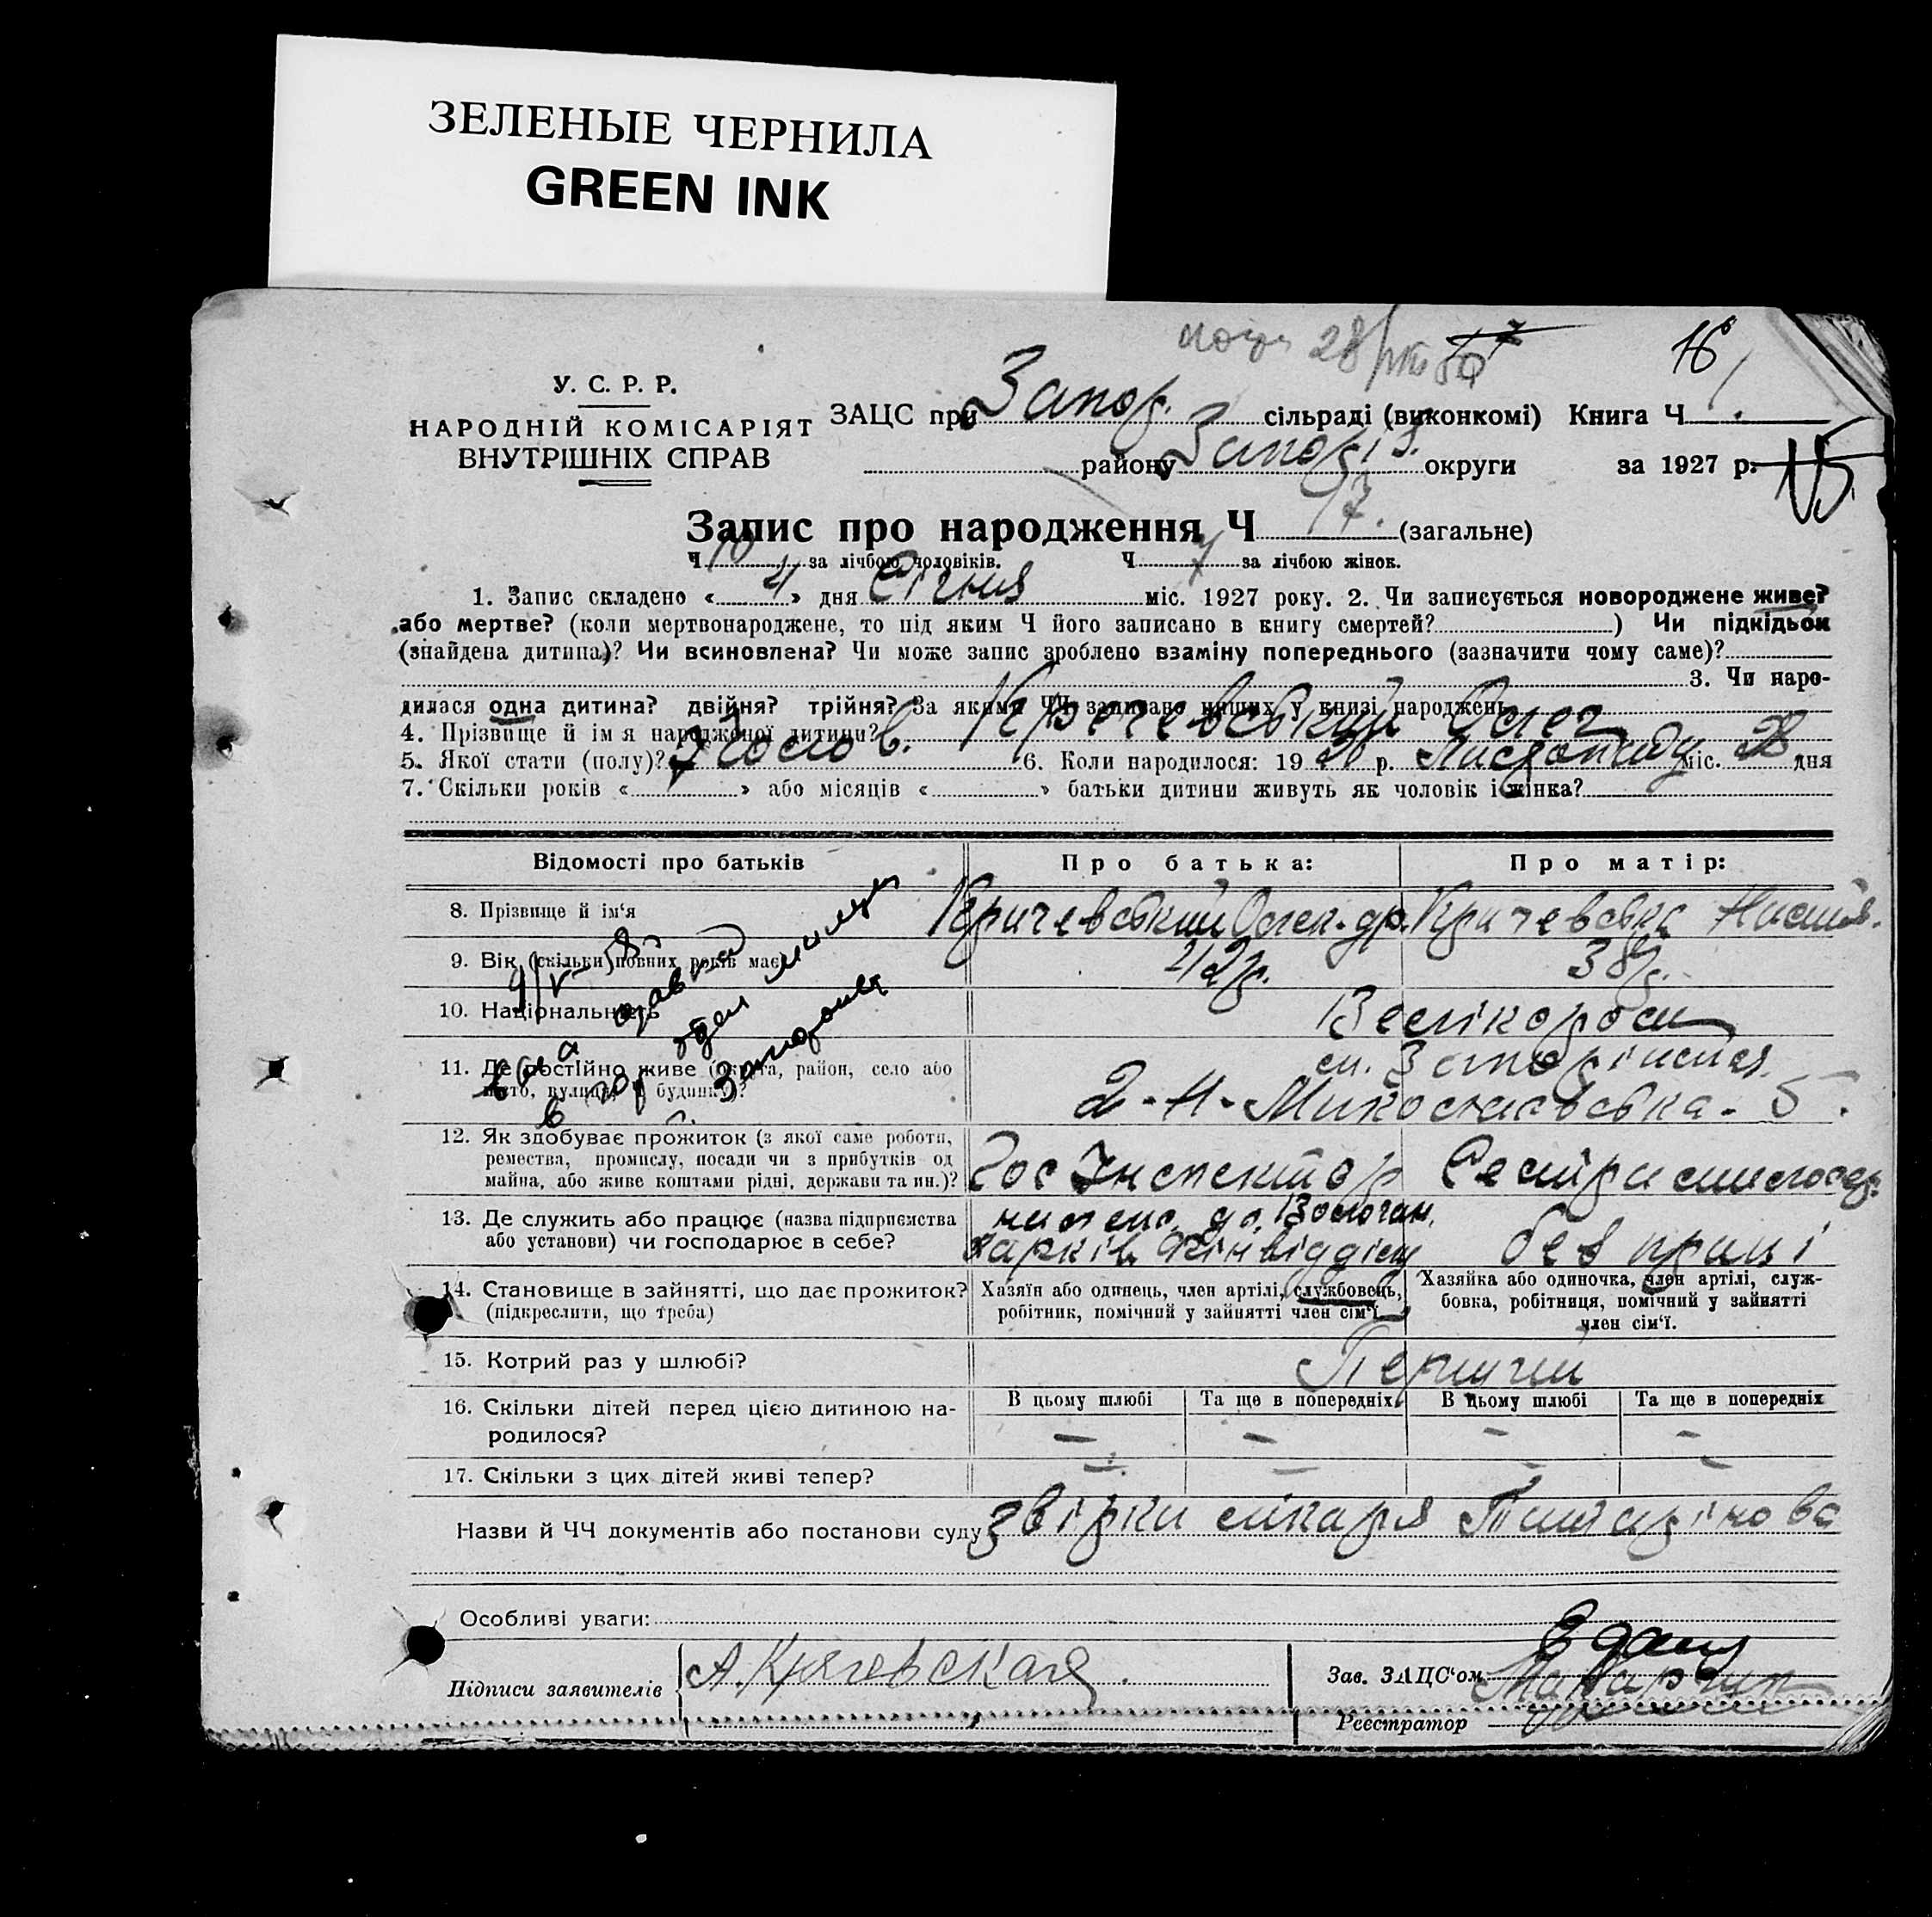 ЗЕЛЕНЫЕ ЧЕРНИЛА
GREEN INK
28/
16
У. С. Р. Р.
НАРОДНІЙ КОМІСАРІЯТ
ВНУТРІШНІХ СПРАВ
ЗАЦС при Запор. сільраді (виконкомі) Книга Ч 1.
району Запоріз. округи за 1927 р. 15
Запис про народження Ч 17. (загальне)
Ч 10 за лічбою чоловіків. Ч 7 за лічбою жінок.
1. Запис складено «4» дня Січня міс. 1927 року. 2. Чи записується новороджене живе?
або мертве? (коли мертвонароджене, то під яким Ч його записано в книгу смертей? ) Чи підкідьок
(знайдена дитина)? Чи всиновлена? Чи може запис зроблено взаміну попереднього (зазначити чому саме)?
3. Чи наро-
дилася одна дитина? двійня? трійня? За якими ЧЧ записано инших у книзі народжень
4. Прізвище й ім'я народженої дитини? Кричевський Олег
5. Якої стати (полу)? Чолов. 6. Коли народилося: 1926 р. Листопаду міс. 28 дня
7. Скільки років « » або місяців « » батьки дитини живуть як чоловік і жінка?
Відомості про батьків Про батька: Про матір:
8. Прізвище й ім'я Кричевський Олек-др. Кричевська
9. Вік (скільки повних років має) 42 р. 38 р.
10. Національність Велікороси
11. Де постійно живе (округа, район, село або
місто, вулиця, Ч будинку)?
ст. Запоріжжя
2-
12. Як здобуває прожиток (з якої саме роботи,
ремества, промислу, посади чи з прибутків од
майна, або живе коштами рідні, держави та ин.)?
Гос Інспектор Сестра милосер.
13. Де служить або працює (назва підприємства
або установи) чи господарює в себе?
Харків Фінвідділу без праці
14. Становище в зайнятті, що дає прожиток?
(підкреслити, що треба)
Хазяїн або одинець, член артілі, службовець,
робітник, помічний у зайнятті член сім'ї.
Хазяйка або одиночка, член артілі, служ-
бовка, робітниця, помічний у зайнятті
член сім'ї.
15. Котрий раз у шлюбі? Перший
16. Скільки дітей перед цією дитиною на-
родилося?
В цьому шлюбі Та ще в попередніх В цьому шлюбі Та ще в попередніх
— — — —
17. Скільки з цих дітей живі тепер? — — — —
Назви й ЧЧ документів або постанови суду лікаря
Особливі уваги:
Підписи заявителів
Зав. ЗАЦС'ом
Реєстратор